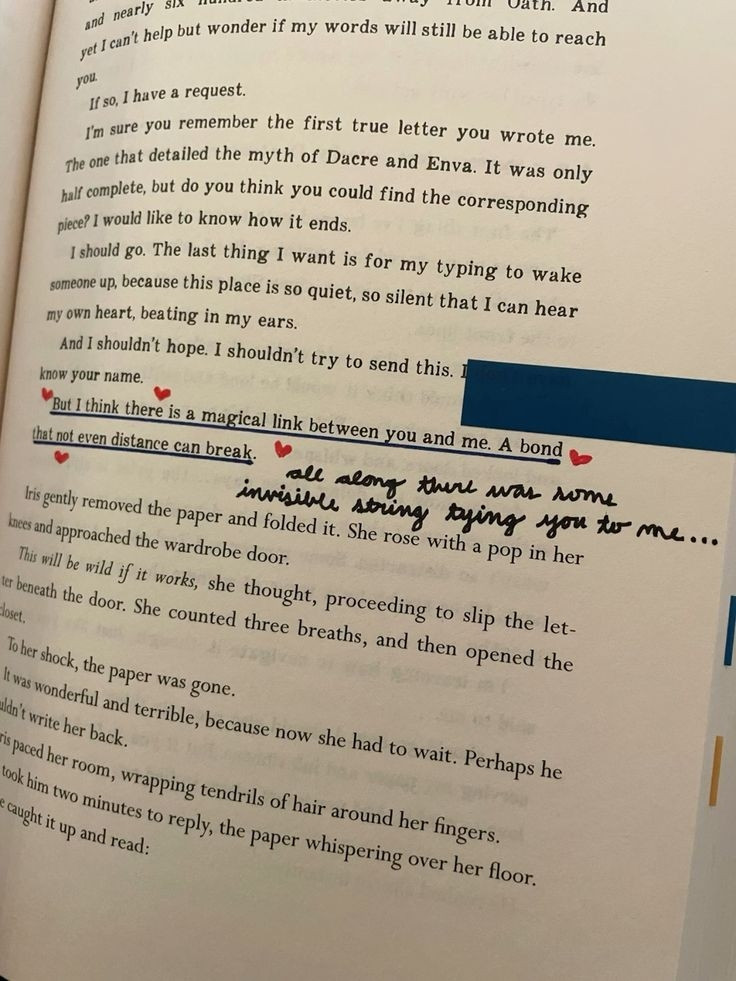 and nearly six away from Oath. And
yet I can't help but wonder if my words will still be able to reach
you.
If so, I have a request.
I'm sure you remember the first true letter you wrote me.
The one that detailed the myth of Dacre and Enva. It was only
half complete, but do you think you could find the corresponding
piece? I would like to know how it ends.
I should go. The last thing I want is for my typing to wake
someone up, because this place is so quiet, so silent that I can hear
my own heart, beating in my ears.
And I shouldn't hope. I shouldn't try to send this. I
know your name.
But I think there is a magical link between you and me. A bond
that not even distance can break.
all along there was some
invisible string tying you to me...
Iris gently removed the paper and folded it. She rose with a pop in her
knees and approached the wardrobe door.
This will be wild if it works, she thought, proceeding to slip the let-
ter beneath the door. She counted three breaths, and then opened the
closet.
To her shock, the paper was gone.
It was wonderful and terrible, because now she had to wait. Perhaps he
uldn't write her back.
ris paced her room, wrapping tendrils of hair around her fingers.
took him two minutes to reply, the paper whispering over her floor.
e caught it up and read: